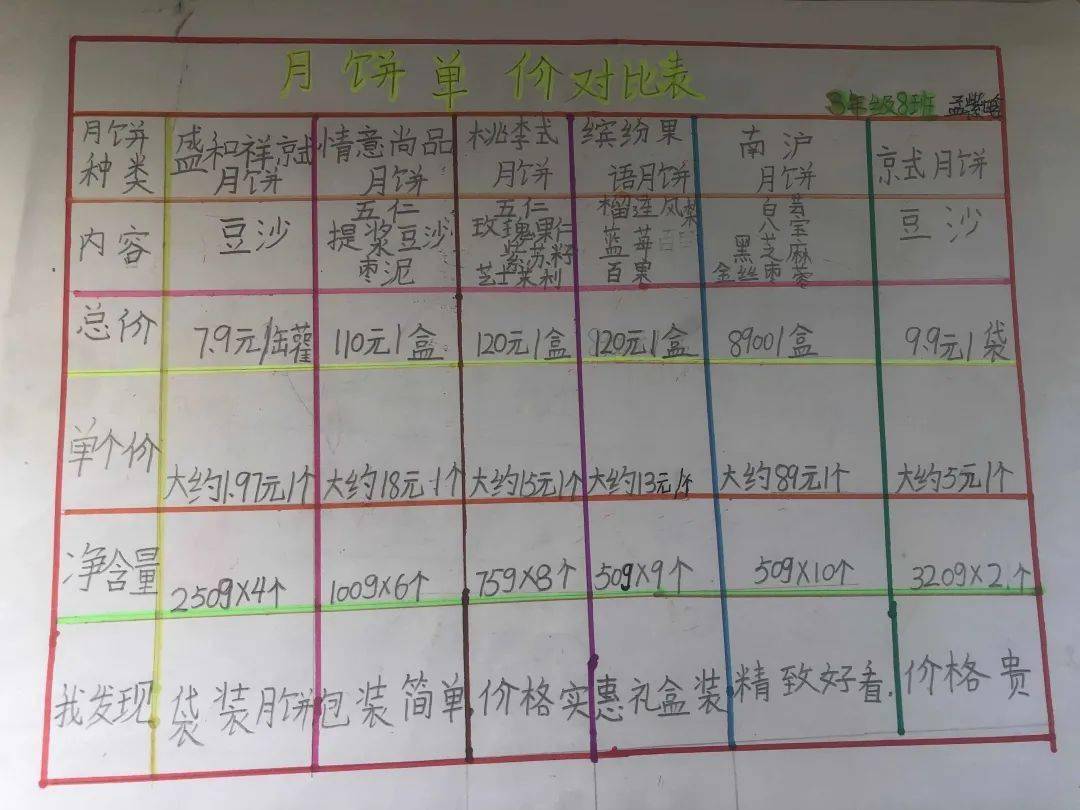 月饼单价对比表
3年级8班 孟紫
月饼种类 盛和祥京式月饼 情意尚品月饼 桃李式月饼 缤纷果语月饼 南沪月饼 京式月饼
内容 豆沙 五仁 提浆豆沙 枣泥 五仁 玫瑰果仁 紫苏籽 芝士茉利 榴连凤梨 蓝莓 百果 白芸 八宝 黑芝麻 金丝枣蓉 豆沙
总价 7.9元/1罐 110元/1盒 120元/1盒 120元/1盒 8900/1盒 9.9元/1袋
单个价 大约1.97元1个 大约18元1个 大约15元1个 大约13元1个 大约89元1个 大约5元1个
净含量 250g×4个 100g×6个 75g×8个 50g×9个 50g×10个 320g×2个
我发现 袋装月饼包装简单,价格实惠礼盒装精致好看,价格贵